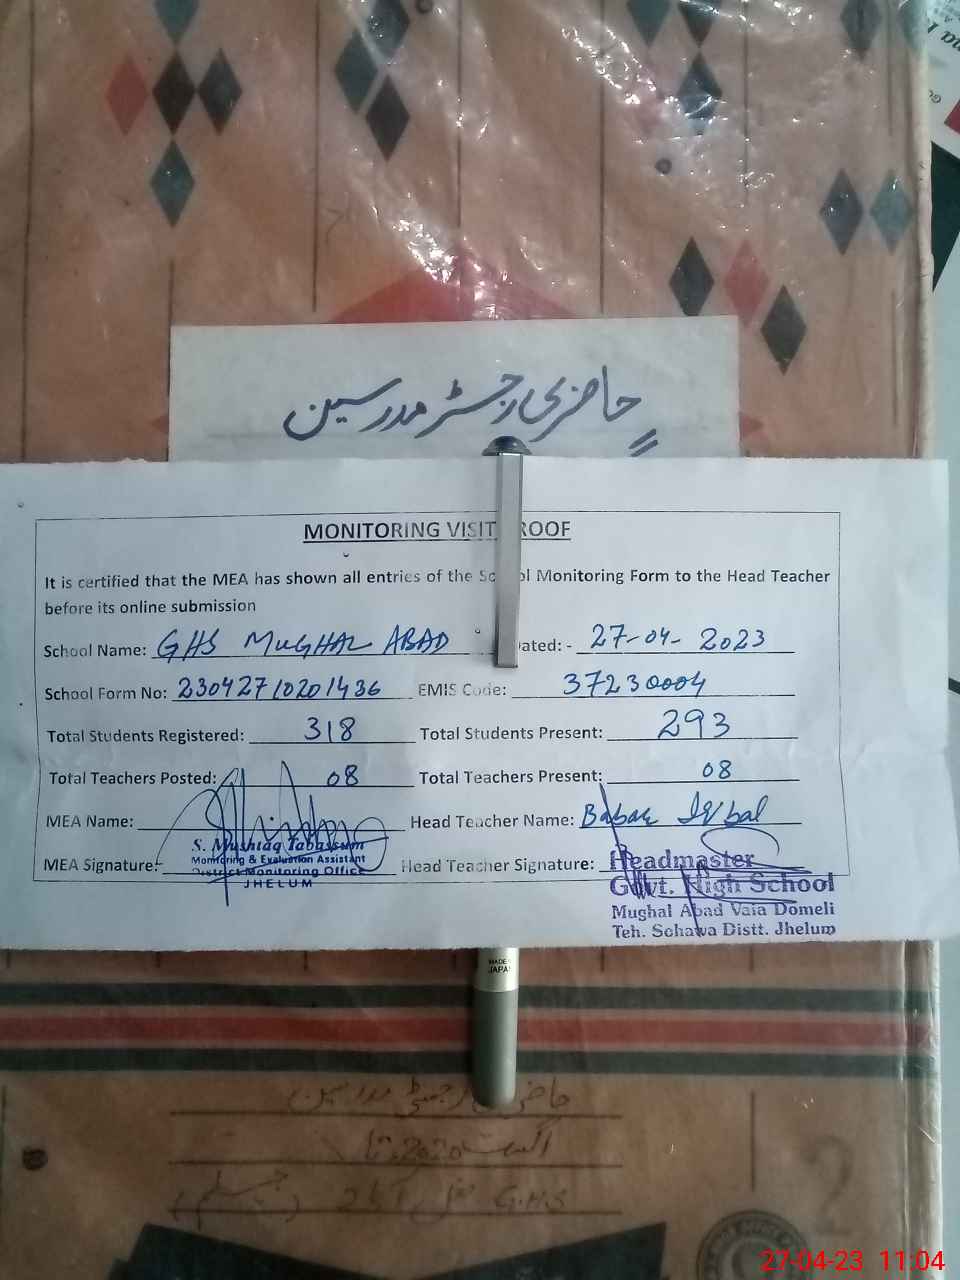 حاضری رجسٹر مدرسین
MONITORING VISIT ROOF
It is certified that the MEA has shown all entries of the Sc ol Monitoring Form to the Head Teacher
before its online submission
School Name: GHS MUGHAL ABAD ated: - 27-04-2023
School Form No: 2304271020 1436 EMIS Code: 37230004
Total Students Registered: 318 Total Students Present: 293
Total Teachers Posted: 08 Total Teachers Present: 08
MEA Name: Head Teacher Name: Babar Iqbal
S. Mushtaq Tabassum
Monitoring & Evaluation Assistant
MEA Signature: Head Teacher Signature:
District Monitoring Office
JHELUM
Headmaster
Govt. High School
Mughal Abad Vaia Domeli
Teh. Sohawa Distt. Jhelum
MADE
JAPAN
حاضری رجسٹر مدرسین
2020 تا
G.H.S
2
27-04-23 11:04